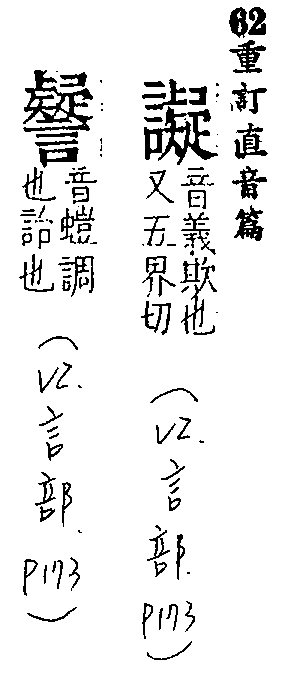 62重訂直音篇
譺
音義欺也
又五界切
(V2.言部.P173)
音螘調
也也
(V2.言部.P173)